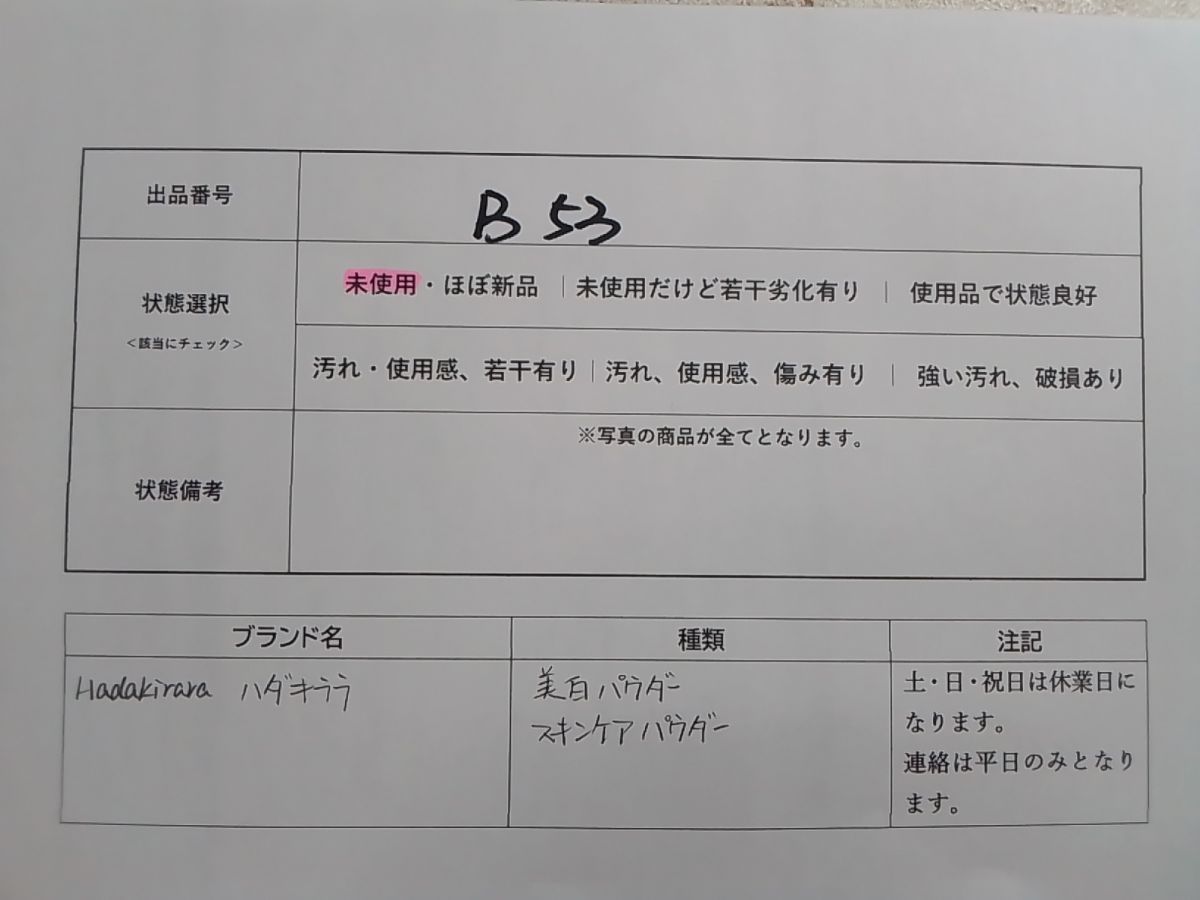 出品番号
B 53
状態選択
<該当にチェック>
未使用・ほぼ新品 | 未使用だけど若干劣化有り | 使用品で状態良好
汚れ・使用感、若干有り | 汚れ、使用感、傷み有り | 強い汚れ、破損あり
状態備考
※写真の商品が全てとなります。
ブランド名
Hadakirara ハダキララ
種類
美白パウダー
スキンケアパウダー
注記
土・日・祝日は休業日に
なります。
連絡は平日のみとなり
ます。